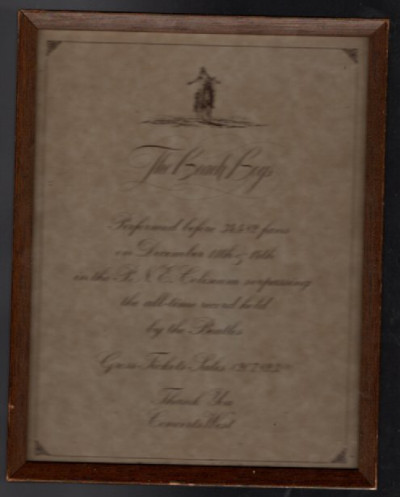 The Beach Boys
Performed before fans
on December &
in the P. N. E. Coliseum surpassing
the all-time record held
by the Beatles
Gross Tickets Sales
Thank You
Concerts West